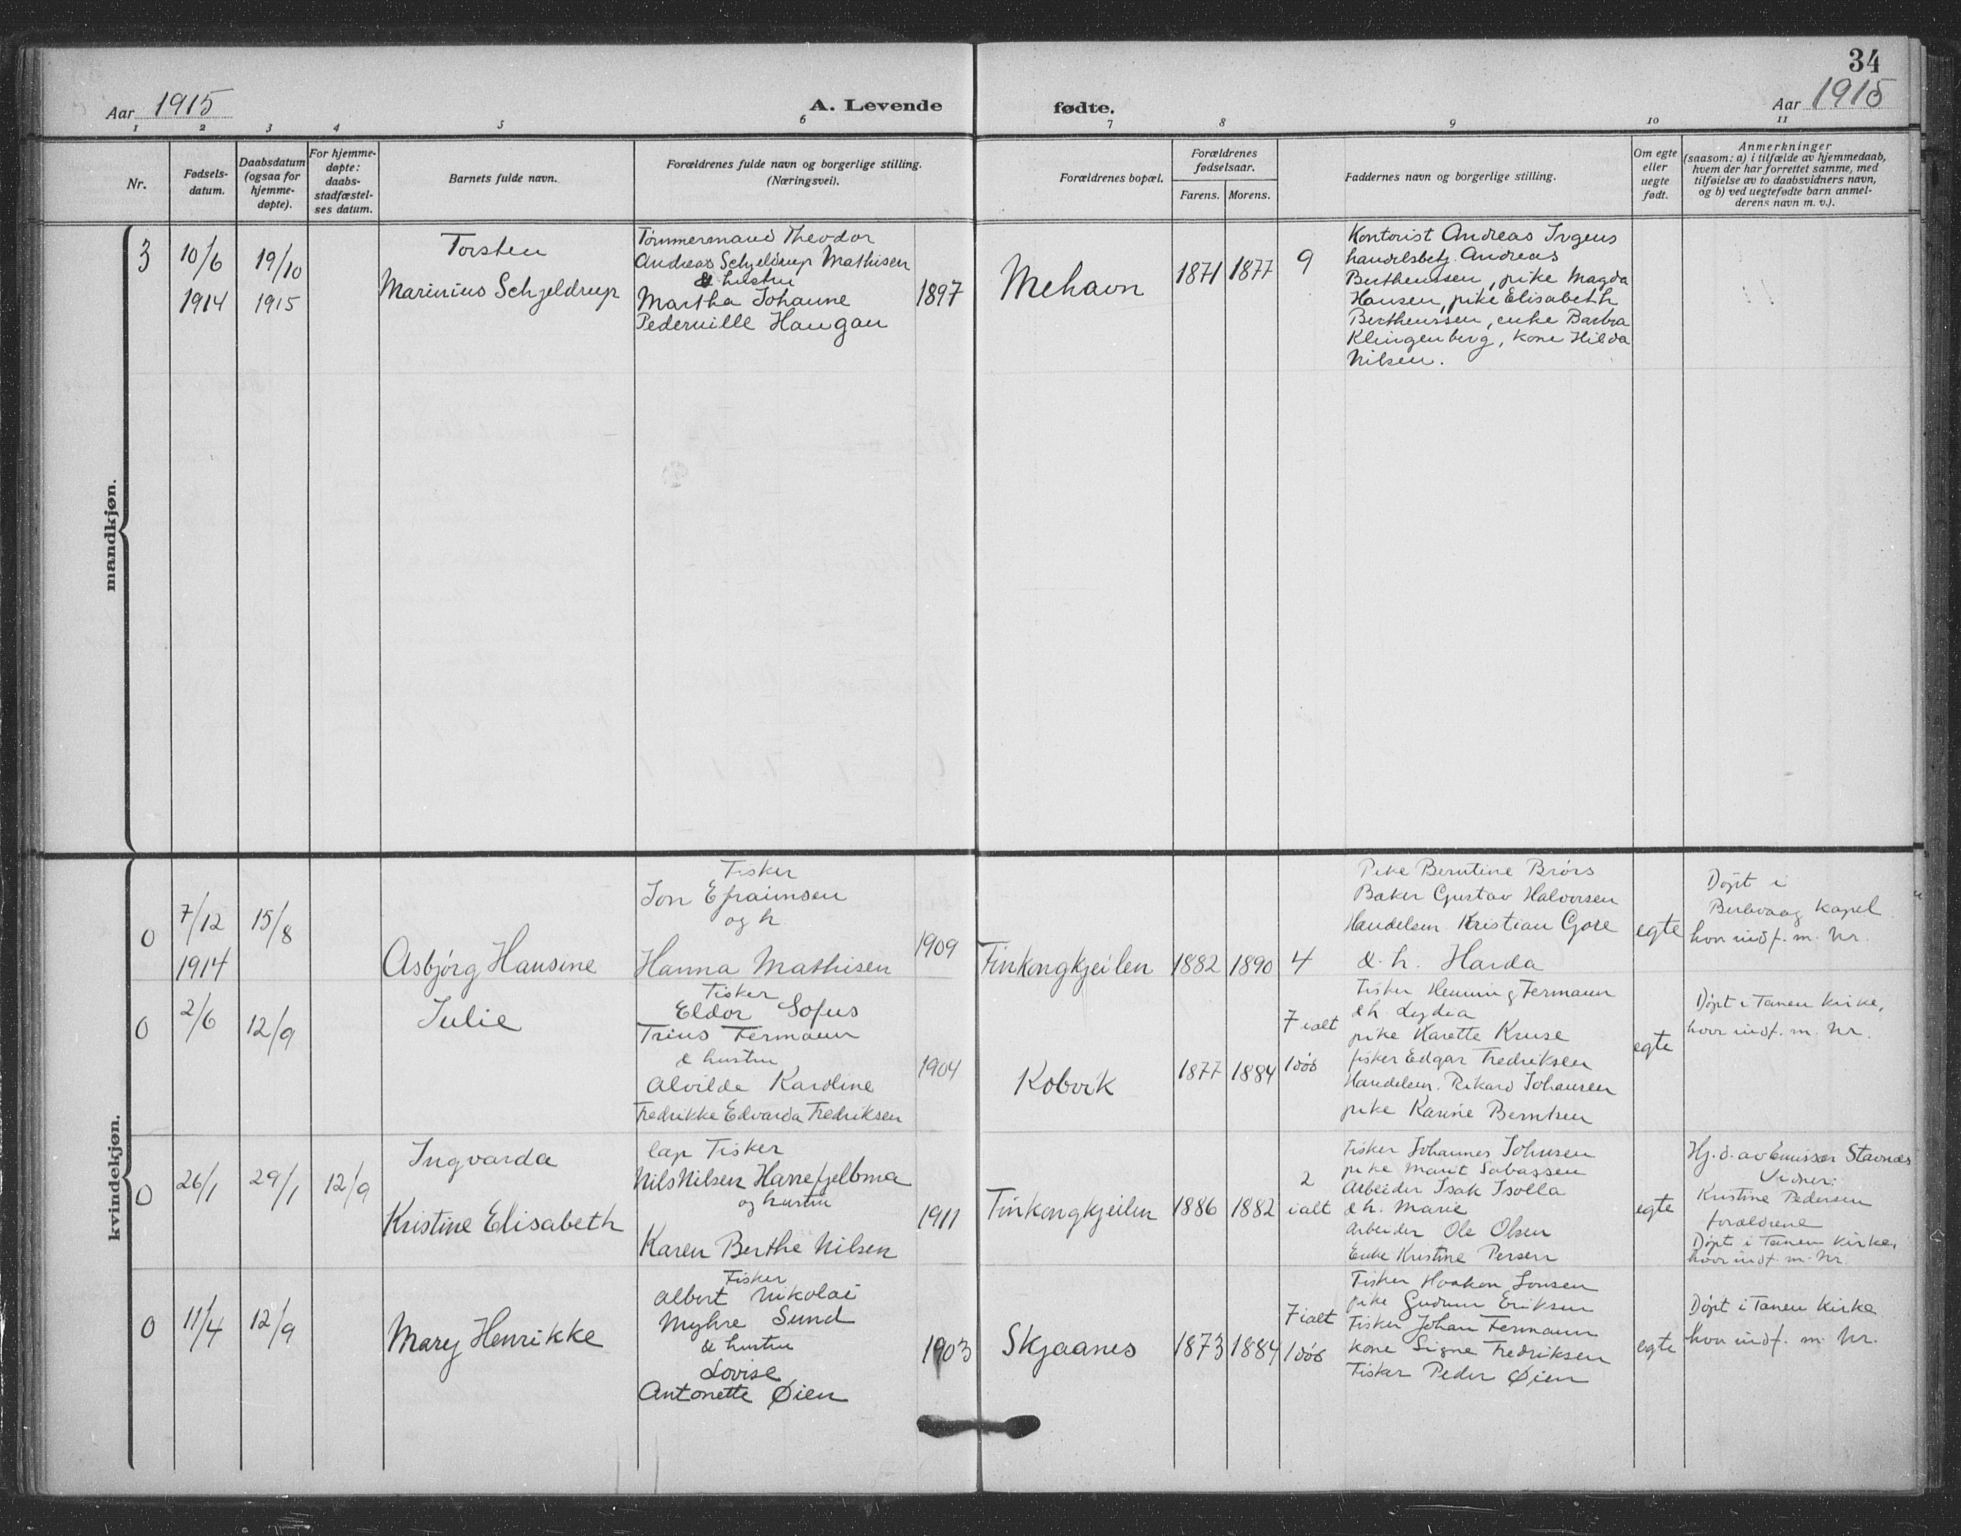 34
Aar 1915
A. Levende
fødte.
Aar 1915
1 2 3 4 5 6 7 8 9 10 11
Nr.
Fødsels-
datum.
Daabsdatum
(ogsaa for
hjemme-
døpte).
For hjemme-
døpte:
daabs-
stadfæstel-
ses datum.
Barnets fulde navn.
Forældrenes fulde navn og borgerlige stilling.
(Næringsvei).
Forældrenes bopæl.
Forældrenes
fødselsaar.
Farens. Morens.
Faddernes navn og borgerlige stilling.
Om egte
eller
uegte
født.
Anmerkninger
(saasom: a) i tilfælde av hjemmedaab,
hvem der har forrettet samme, med
tilføielse av to daabsvidners navn,
og b) ved uegtefødte barn anmel-
derens navn m. v.).
mandkjøn.
3
10/6
1914
19/10
1915
Torsten
Marinius Schjeldrup
Tømmermand Theodor
Andreas Schjeldrup Mathisen
& hustru
Martha Johanne
Pedernille Haugan
1897
Mehavn
1871 1877 9
Kontorist Andreas Irgens
handelsbetj. Andreas
Berthenssen, pike Magda
Hansen, pike Elisabeth
Berthenssen, enke Barbra
Klingenberg, kone Hilda
Nilsen.
kvindekjøn.
0
7/12
1914
15/8
Asbjørg Hansine
Fisker
Jon Efraimsen
og h.
Hanna Mathisen
1909
Finkongkjeilen
1882 1890 4
Pike Berntine Brörs
Baker Gustav Halvorsen
Handelsm Kristian Gore
& h. Harda
egte
Døpt i
Berlevaag Kapel
hvor indf. m. Nr.
0
2/6
12/9
Julie
Fisker
Eldor Sofus
Trius Fermann
& hustru
Alvilde Karoline
Fredrikke Edvarda Fredriksen
1904
Kobvik
1877 1884
7 ialt
1 død
Fisker Henning Fermann
& h. Lydia
pike Karette Kruse
fisker Edgar Fredriksen
Handelsm. Rikard Johansen
pike Karine Berntsen
egte
Døpt i Tanen Kirke,
hvor indf. m. Nr.
0
26/1
29/1
12/9
Ingvarda
Kristine Elisabeth
lap Fisker
Nils Nilsen Harrefjeldma
og hustru
Karen Berthe Nilsen
1911
Finkongkjeilen
1886 1882
2
ialt
Fisker Johannes Johnsen
pike Marit Sabassen
Arbeider Isak Isolla
& h. Marie
Arbeider Ole Olsen
Enke Kristine Persen
egte
Hj. d. av Emissær Stavnæs
Vidner:
Kristine Pedersen
forældrene
Døpt i Tanen Kirke,
hvor indf. m. Nr.
0
11/4
12/9
Mary Henrikke
Fisker
Albert Nikolai
Myhre Sund
& hustru
Lovise
Antonette Øien
1903
Skjaanes
1873 1884
7 ialt
1 død
Fisker Haakon Jonsen
pike Gudrun Eriksen
Fisker Johan Fermann
Kone Signe Fredriksen
Fisker Peder Øien
egte
Døpt i Tanen Kirke
hvor indf. m. Nr.